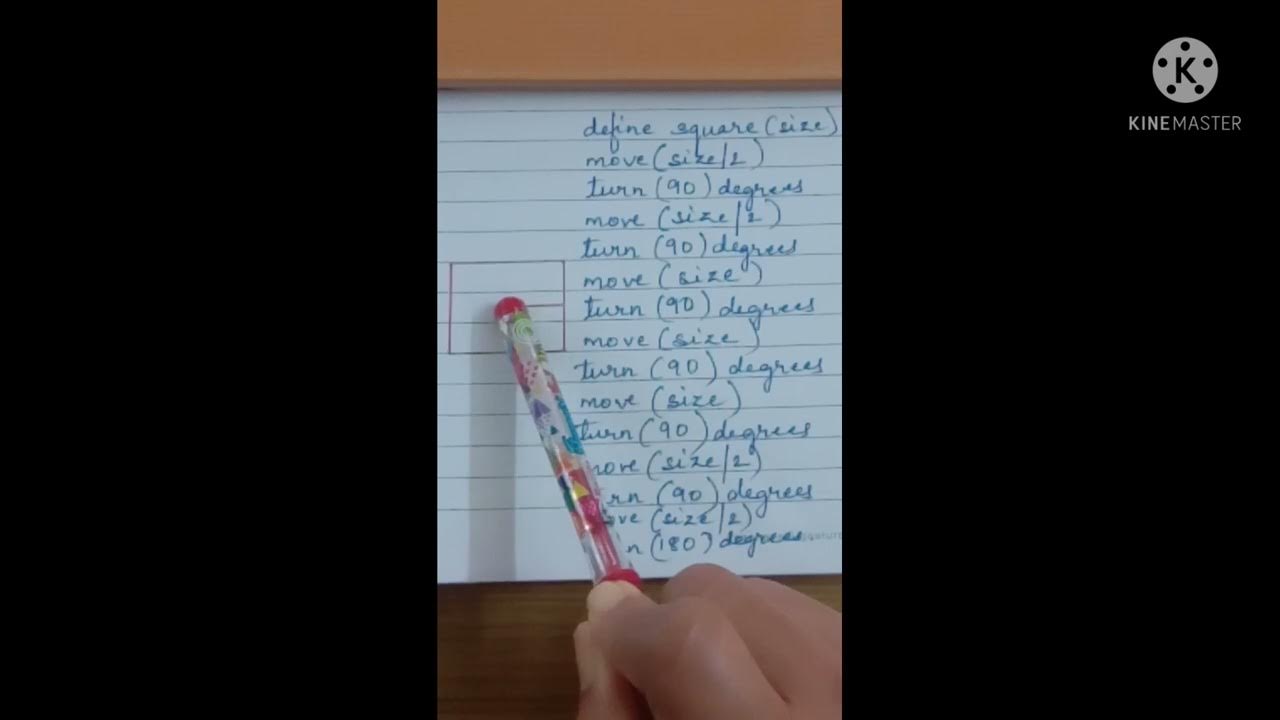 define square (size)
move (size/2)
turn (90) degrees
move (size/2)
turn (90) degrees
move (size)
turn (90) degrees
move (size)
turn (90) degrees
move (size)
turn (90) degrees
move (size/2)
rn (90) degrees
ove (size/2)
n (180) degrees
K
KINEMASTER